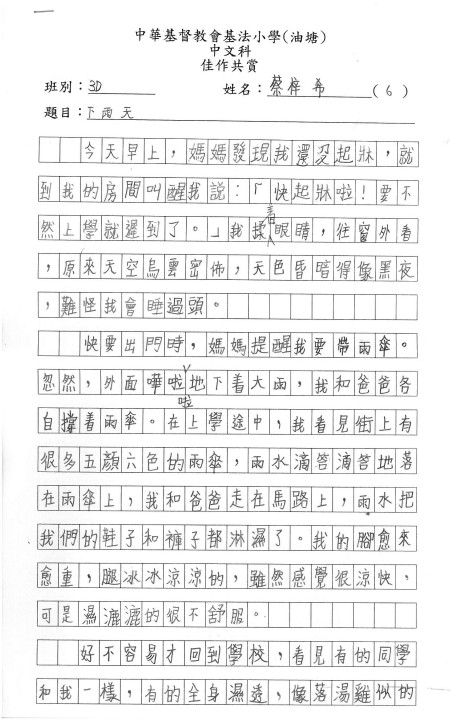 中華基督教會基法小學(油塘)
中文科
佳作共賞
班別：3D 姓名：蔡梓希 (6)
題目：下雨天
今天早上，媽媽發現我還沒起牀，就
到我的房間叫醒我說：「快起牀啦！要不
然上學就遲到了。」我揉着眼睛，往窗外看
，原來天空烏雲密佈，天色昏暗得像黑夜
，難怪我會睡過頭。
快要出門時，媽媽提醒我要帶雨傘。
忽然，外面嘩啦啦地下着大雨，我和爸爸各
自撐着雨傘。在上學途中，我看見街上有
很多五顏六色的雨傘，雨水滴答滴答地落
在雨傘上，我和爸爸走在馬路上，雨水把
我們的鞋子和褲子都淋濕了。我的腳愈來
愈重，腿冰冰涼涼的，雖然感覺很涼快，
可是濕漉漉的很不舒服。
好不容易才回到學校，看見有的同學
和我一樣，有的全身濕透，像落湯雞似的